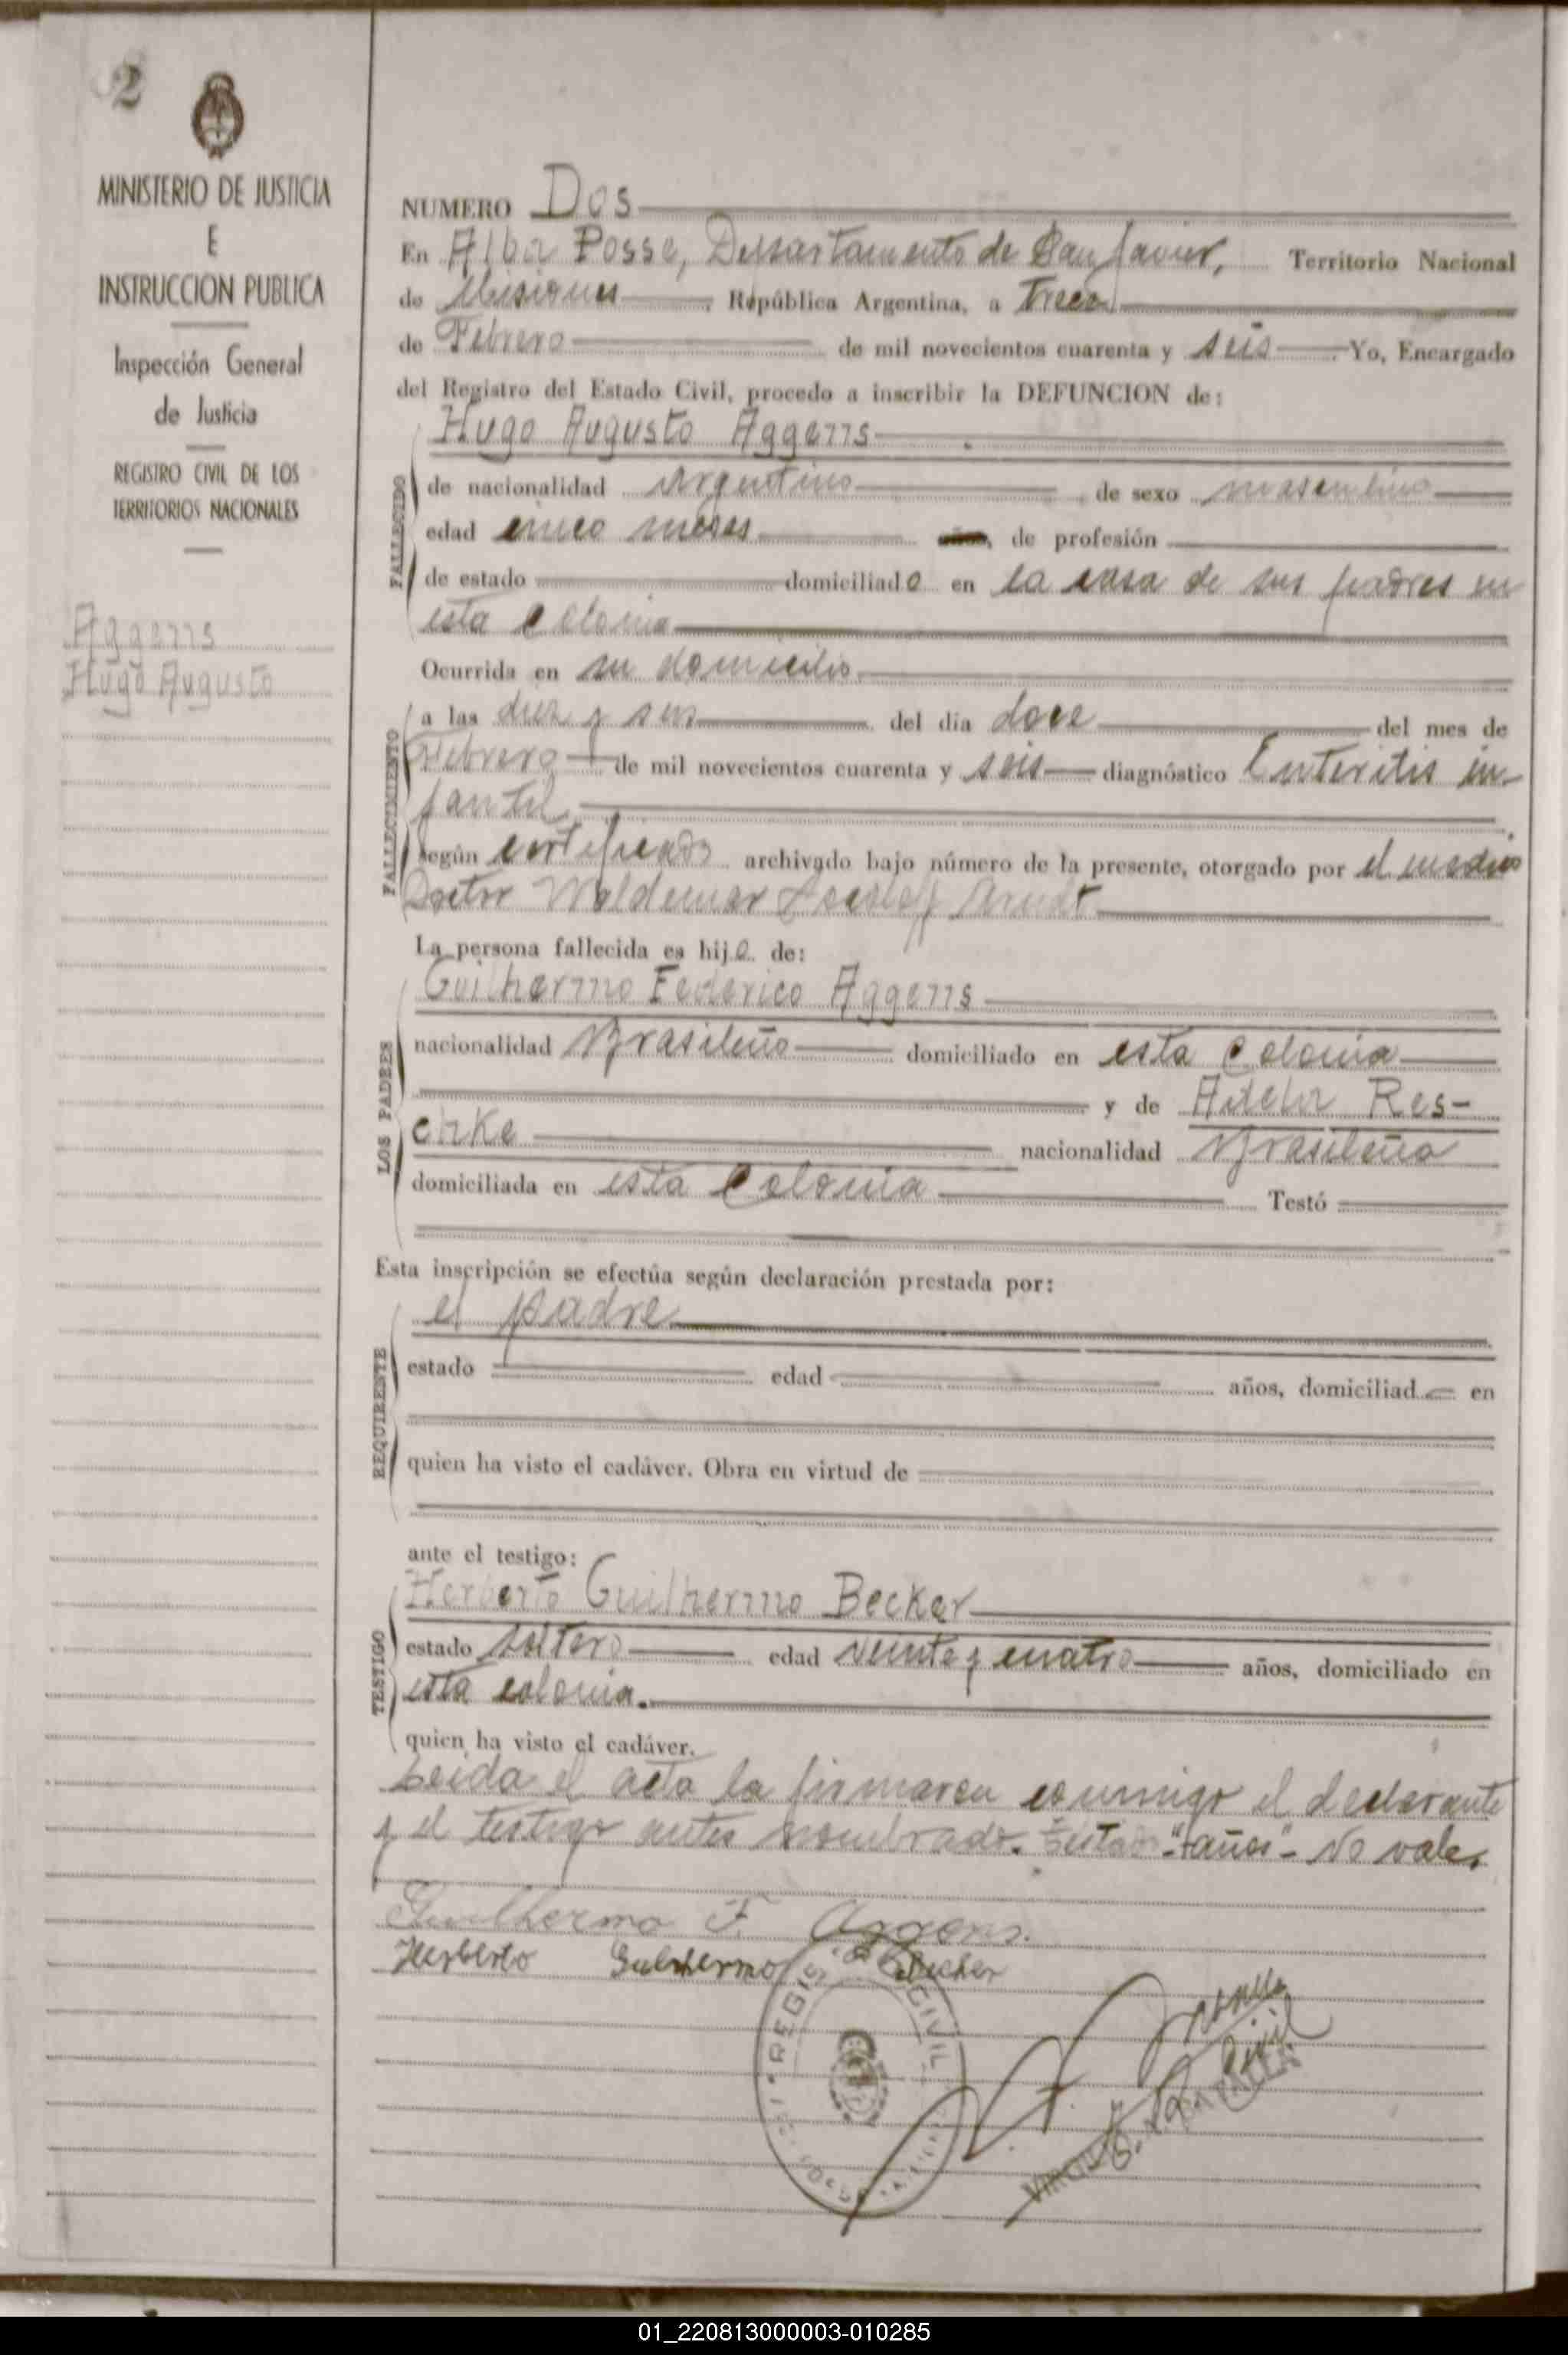 2
MINISTERIO DE JUSTICIA
E
INSTRUCCION PUBLICA
Inspección General
de Justicia
REGISTRO CIVIL DE LOS
TERRITORIOS NACIONALES
Aggens
Hugo Augusto
NUMERO Dos
En Alba Posse, Departamento de San Javier, Territorio Nacional
de Misiones, República Argentina, a Trece
de Febrero de mil novecientos cuarenta y seis Yo, Encargado
del Registro del Estado Civil, procedo a inscribir la DEFUNCION de:
FALLECIDO
Hugo Augusto Aggens
de nacionalidad Argentino, de sexo masculino
edad cinco meses años, de profesión
de estado domiciliado en la casa de sus padres en
esta Colonia
Ocurrida en su domicilio
FALLECIMIENTO
a las diez y seis del día doce del mes de
Febrero de mil novecientos cuarenta y seis diagnóstico Enteritis in-
fantil
según certificado archivado bajo número de la presente, otorgado por el medico
Doctor Waldemar Arndt
La persona fallecida es hijo de:
LOS PADRES
Guilhermo Federico Aggens
nacionalidad Brasileño domiciliado en esta Colonia
y de Adela Res-
chke nacionalidad Brasileña
domiciliada en esta Colonia Testó
Esta inscripción se efectúa según declaración prestada por:
REQUIRENTE
el padre
estado edad años, domiciliad en
quien ha visto el cadáver. Obra en virtud de
ante el testigo:
TESTIGO
Herberto Guilhermo Becker
estado soltero edad veinte y cuatro años, domiciliado en
esta colonia.
quien ha visto el cadáver.
Leida el acta la firmaron conmigo el declarante
y el testigo antes nombrado. Testado "años" - No vale.
Guilhermo F. Aggens.
Herberto Guilhermo Becker
REGISTRO CIVIL
01_220813000003-010285